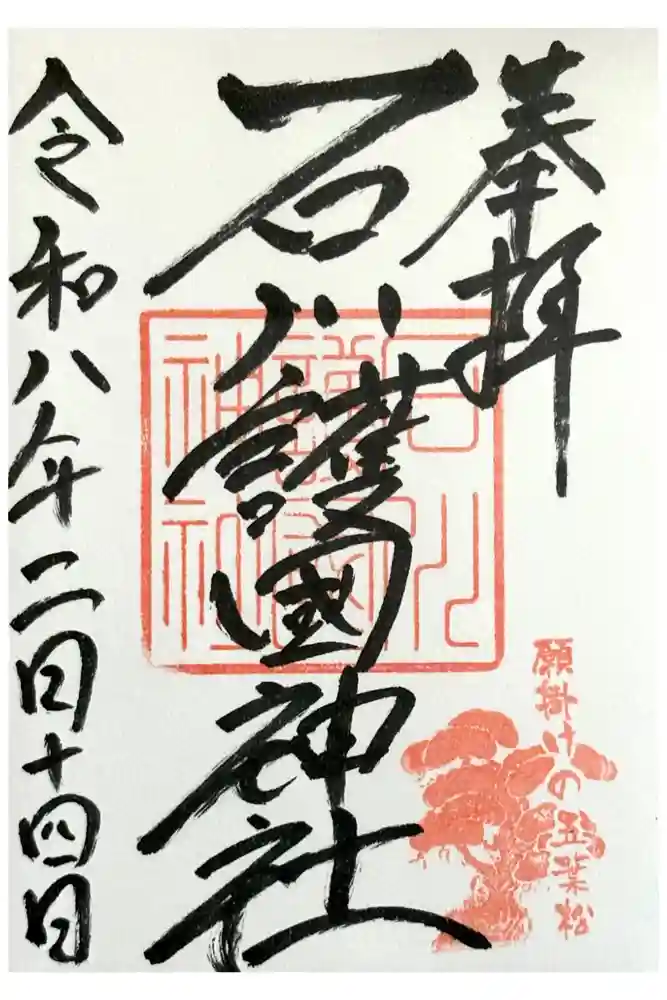 奉拝
石川護國神社
石川
護國
神社
願掛けの五葉松
令和八年二月十四日